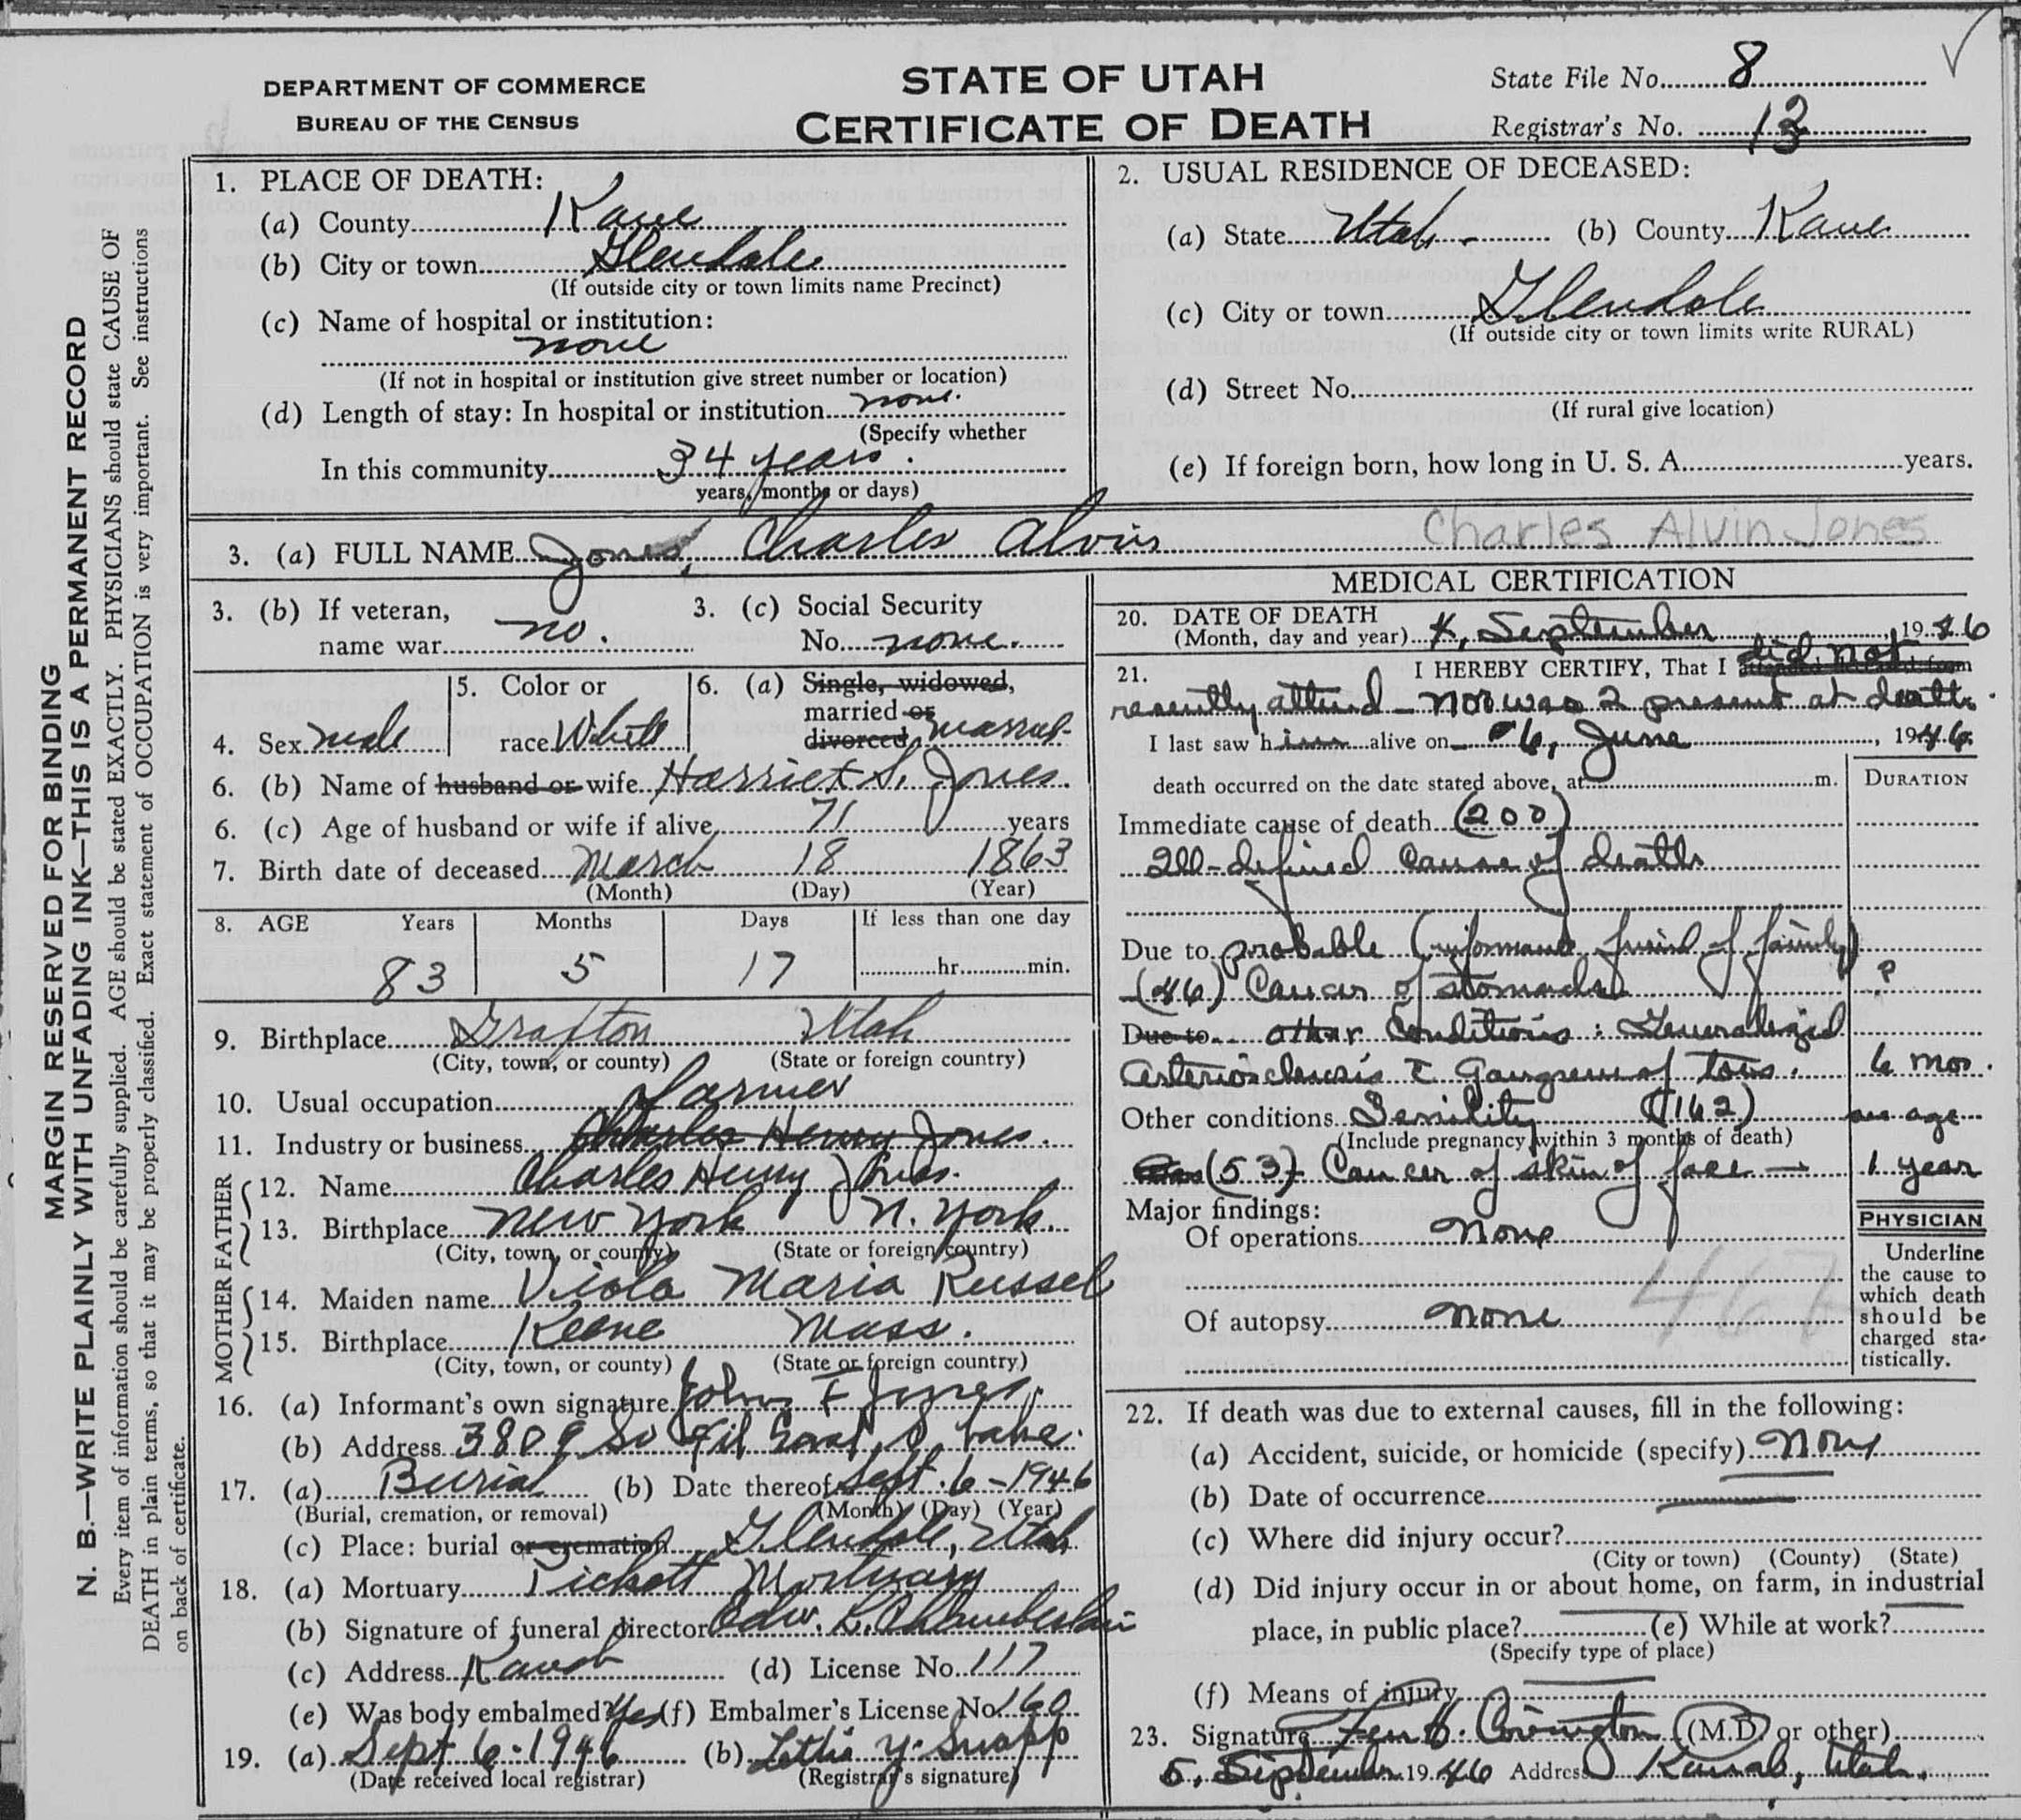 DEPARTMENT OF COMMERCE
BUREAU OF THE CENSUS
STATE OF UTAH
CERTIFICATE OF DEATH
State File No. 8
Registrar's No. 13
MARGIN RESERVED FOR BINDING
N. B.—WRITE PLAINLY WITH UNFADING INK—THIS IS A PERMANENT RECORD
Every item of information should be carefully supplied. AGE should be stated EXACTLY. PHYSICIANS should state CAUSE OF
DEATH in plain terms, so that it may be properly classified. Exact statement of OCCUPATION is very important. See instructions
on back of certificate.
1. PLACE OF DEATH:
(a) County Kane
(b) City or town Glendale
(If outside city or town limits name Precinct)
(c) Name of hospital or institution:
none
(If not in hospital or institution give street number or location)
(d) Length of stay: In hospital or institution none.
(Specify whether
In this community 34 years.
years, months or days)
2. USUAL RESIDENCE OF DECEASED:
(a) State Utah - (b) County Kane
(c) City or town Glendale
(If outside city or town limits write RURAL)
(d) Street No.
(If rural give location)
(e) If foreign born, how long in U. S. A. years.
3. (a) FULL NAME Jones, Charles Alvin Charles Alvin Jones
3. (b) If veteran,
name war no.
3. (c) Social Security
No. none.
4. Sex male
5. Color or
race White
6. (a) Single, widowed,
married or
divorced married
6. (b) Name of husband or wife Harriet S. Jones.
6. (c) Age of husband or wife if alive, 71 years
7. Birth date of deceased March 18 1863
(Month) (Day) (Year)
8. AGE Years Months Days If less than one day
83 5 17 hr. min.
9. Birthplace Grafton Utah
(City, town, or county) (State or foreign country)
10. Usual occupation farmer
11. Industry or business Charles Henry Jones.
FATHER
12. Name Charles Henry Jones.
13. Birthplace New York N. York.
(City, town, or county) (State or foreign country)
MOTHER
14. Maiden name Viola Maria Russel
15. Birthplace Keene Mass.
(City, town, or county) (State or foreign country)
16. (a) Informant's own signature John F Jones
(b) Address 3809 So Lake
17. (a) Burial (b) Date thereof Sept. 6-1946
(Burial, cremation, or removal) (Month) (Day) (Year)
(c) Place: burial or cremation Glendale, Utah
18. (a) Mortuary Pickett Mortuary
(b) Signature of funeral director Edw. Chamberlain
(c) Address Kanab (d) License No. 117
(e) Was body embalmed? Yes (f) Embalmer's License No. 160
19. (a) Sept 6-1946 (b) Lettie Y. Swapp
(Date received local registrar) (Registrar's signature)
MEDICAL CERTIFICATION
20. DATE OF DEATH
(Month, day and year) 4, September, 1946
21. I HEREBY CERTIFY, That I attended deceased from did not
recently attend - nor was I present at death.
I last saw him alive on 6, June, 1946
death occurred on the date stated above, at m.
DURATION
Immediate cause of death (200)
Ill-defined cause of death
Due to probable (informant friend of family)
(46) Cancer of stomach ?
Due to other conditions: Generalized
arteriosclerosis c̄ Gangrene of toes. 6 mos.
Other conditions Senility (162) age
(Include pregnancy within 3 months of death)
(53) Cancer of skin of face — 1 year
Major findings:
Of operations none
Of autopsy none
PHYSICIAN
Underline
the cause to
which death
should be
charged sta-
tistically.
22. If death was due to external causes, fill in the following:
(a) Accident, suicide, or homicide (specify) none
(b) Date of occurrence
(c) Where did injury occur?
(City or town) (County) (State)
(d) Did injury occur in or about home, on farm, in industrial
place, in public place? (e) While at work?
(Specify type of place)
(f) Means of injury
23. Signature Covington (M.D. or other)
5, September 1946 Address Kanab, Utah.